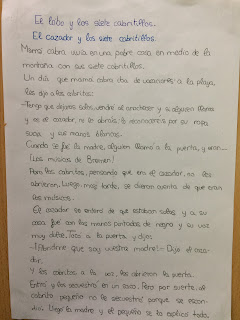 El lobo y los siete cabritillos.
El cazador y los siete cabritillos.
Mamá cabra vivía en una pobre casa en medio de la
montaña con sus siete cabritillos.
Un día que mamá cabra iba de vacaciones a la playa
les dijo a los cabritos:
-Tengo que dejaros solos, vendré al anochecer y si alguien llama
y es el cazador, no le abráis, lo reconoceréis por su ropa
sucia y sus manos blancas.
Cuando se fue la madre, alguien llamó a la puerta, y eran...
¡Los músicos de Bremen!
Pero los cabritos, pensando que era el cazador, no les
abrieron. Luego, más tarde, se dieron cuenta de que eran
los músicos.
El cazador se enteró de que estaban solos y a su
casa fue con las manos pintadas de negro y su voz
muy dulce. Tocó a la puerta y dijo:
-¡Abridme que soy vuestra madre!- Dijo el caza-
dor.
Y los cabritos a la voz, les abrieron la puerta.
Entró y los secuestró en un saco. Pero por suerte al
cabrito pequeño no le secuestró porque se escon-
dió. Llegó la madre y el pequeño se lo explicó todo.